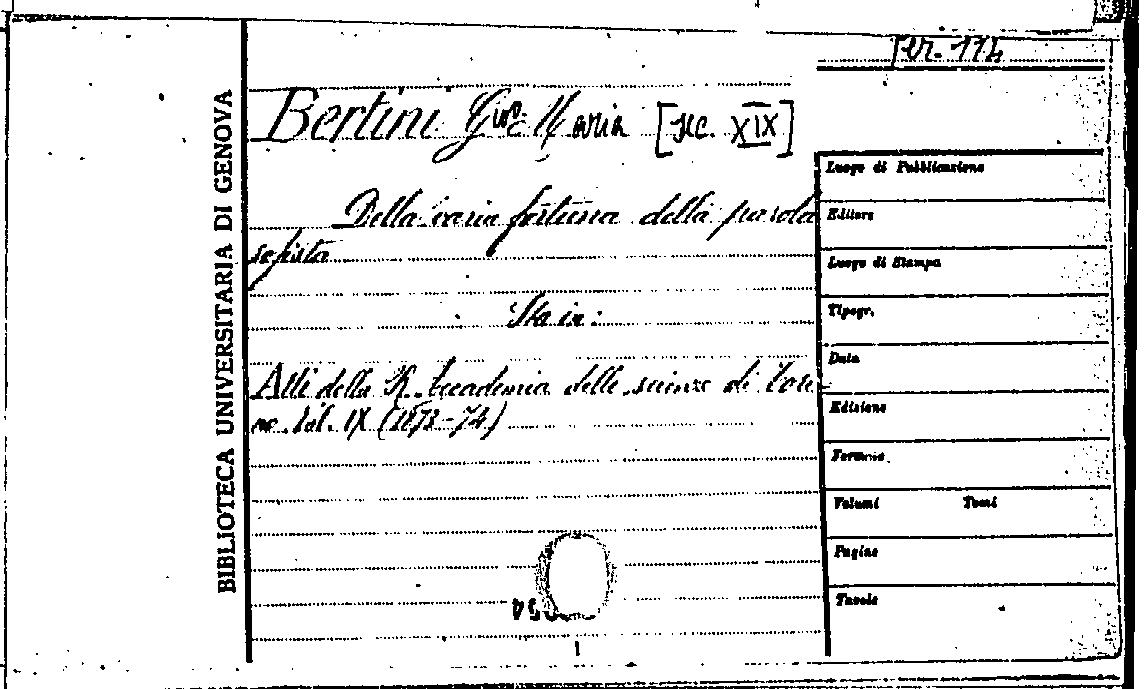 Per. 114
BIBLIOTECA UNIVERSITARIA DI GENOVA
Bertini Gius. Maria [sec. XIX]
Della varia fortuna della parola
sofista
Sta in:
Atti della R. Accademia delle scienze di Tori-
no. Vol. IX (1873-74)
Luogo di Pubblicazione
Editore
Luogo di Stampa
Tipogr.
Data
Edizione
Formato
Volumi Tomi
Pagine
Tavole